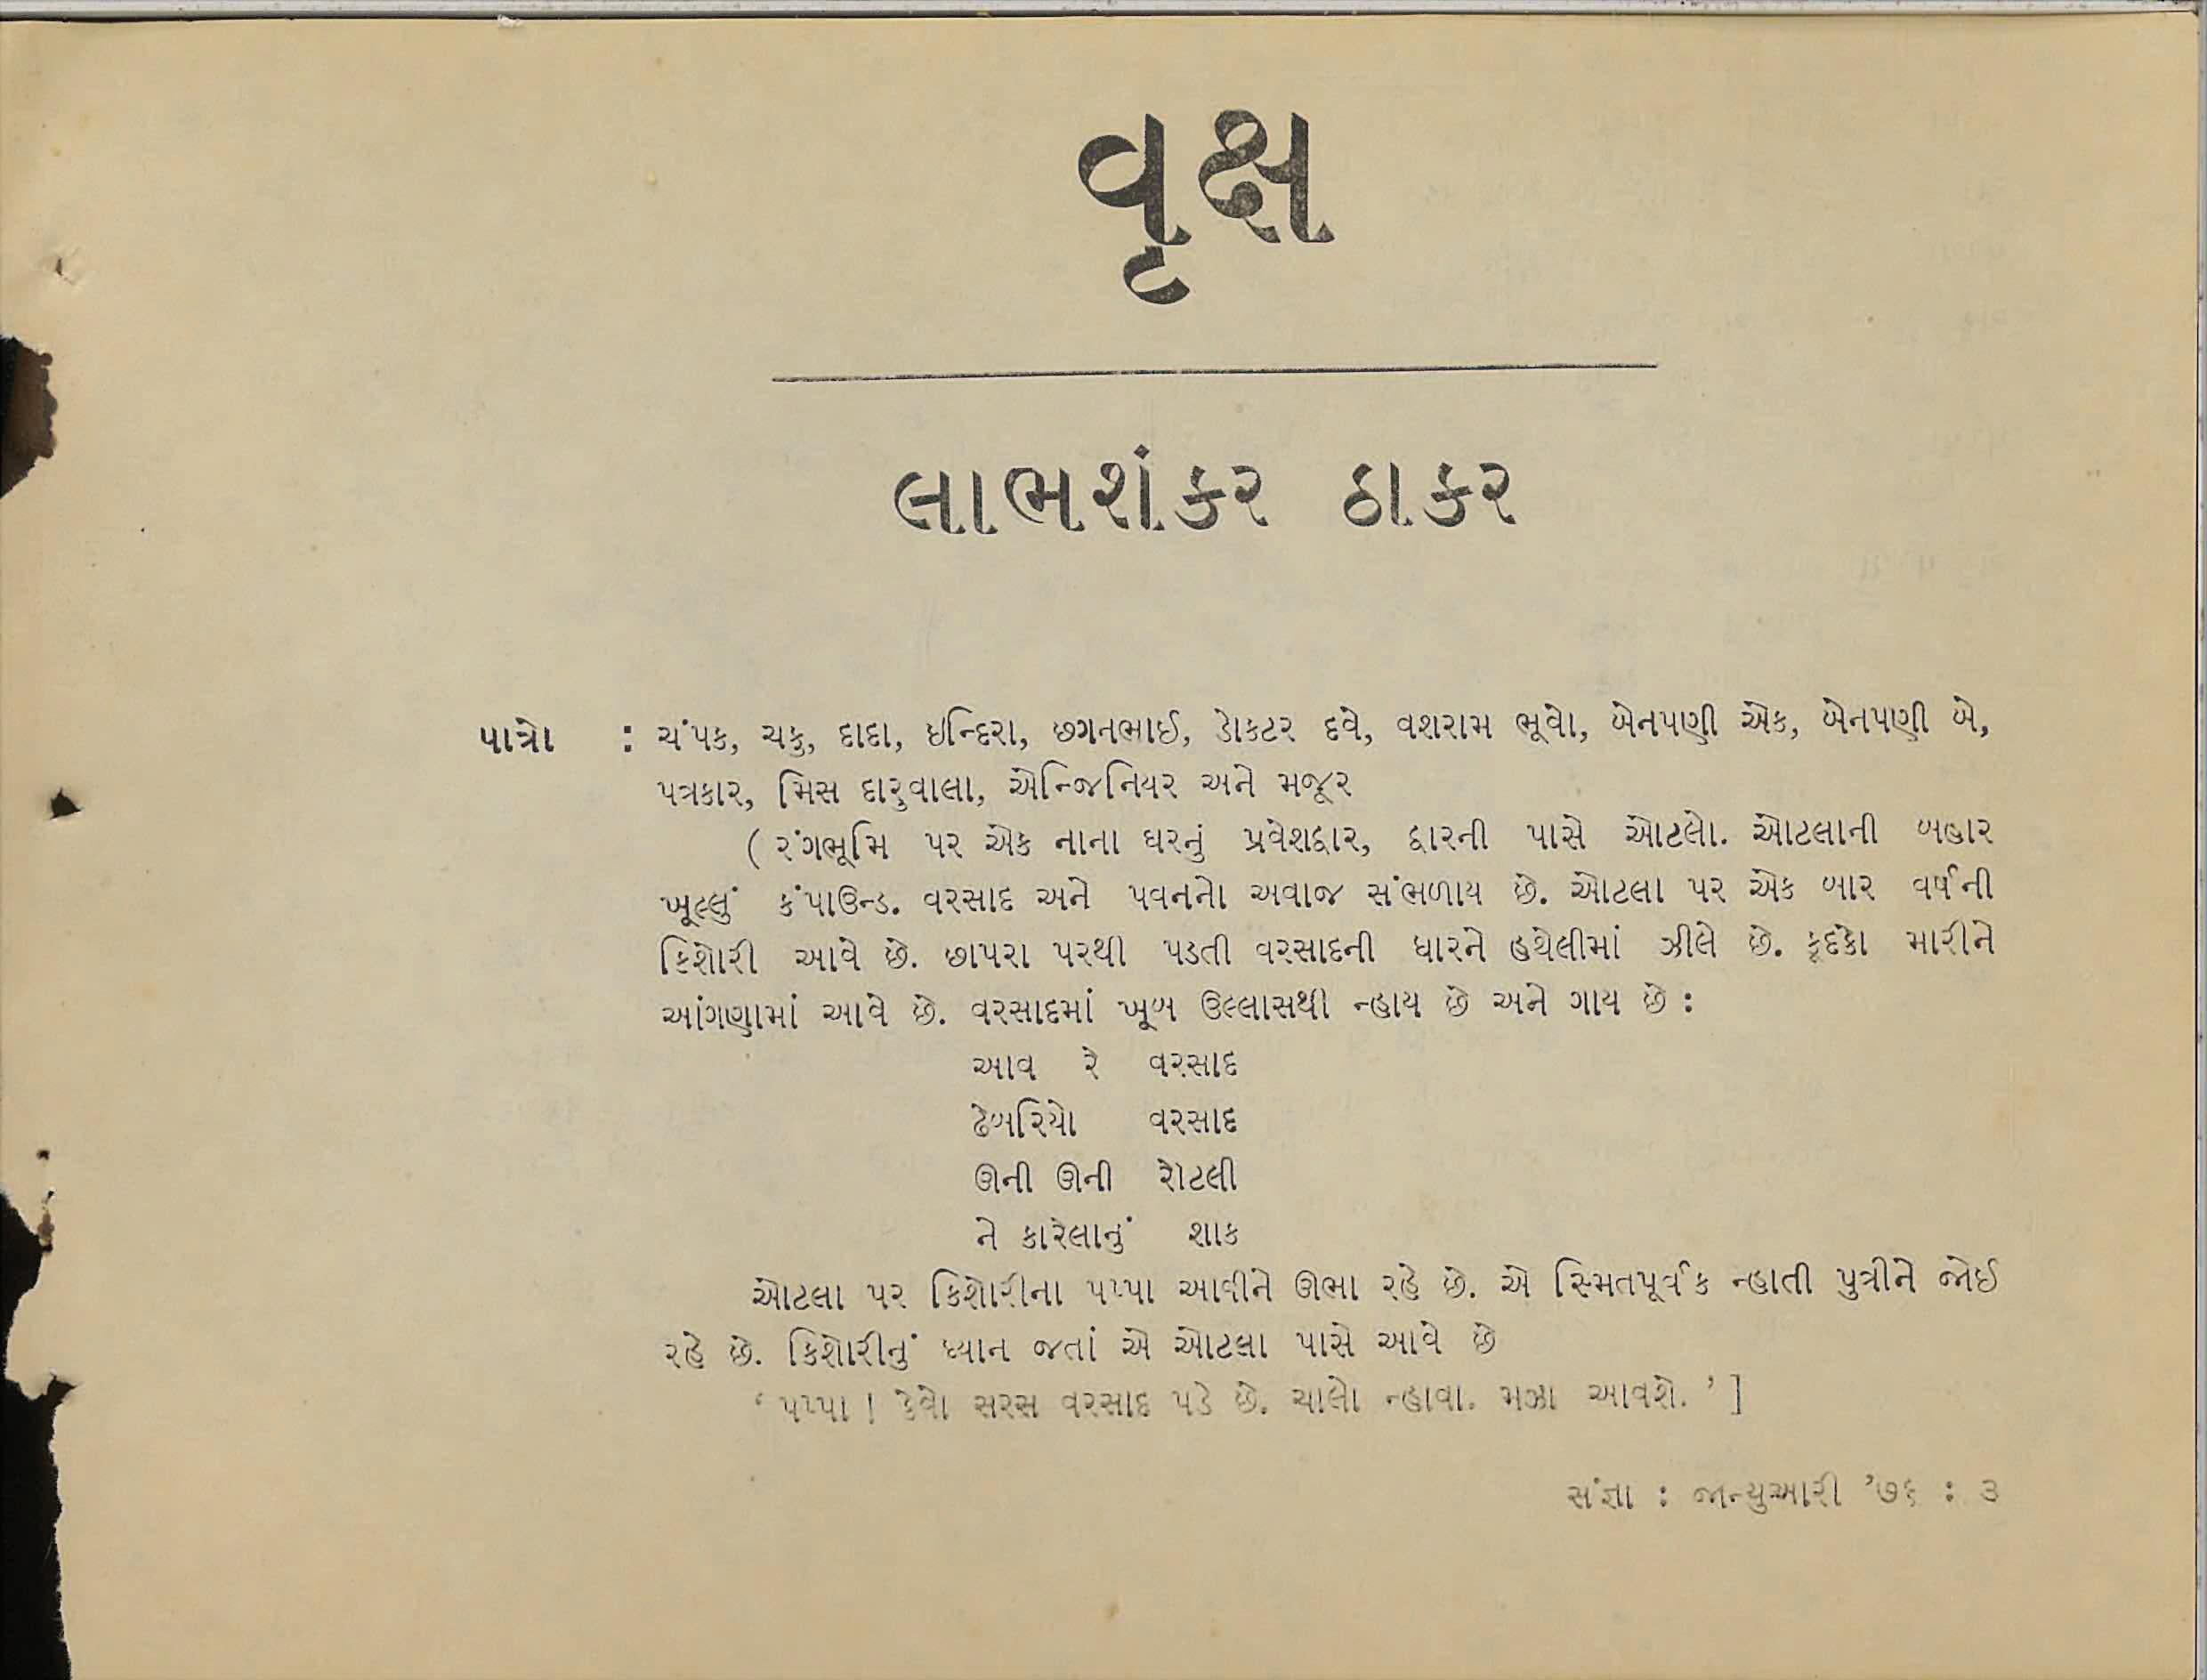 વૃક્ષ
લાભશંકર ઠાકર
પાત્રો : ચંપક, ચકુ, દાદા, ઇન્દિરા, છગનભાઈ, ડોકટર દવે, વશરામ ભૂવો, બેનપણી એક, બેનપણી બે,
પત્રકાર, મિસ દારુવાલા, એન્જિનિયર અને મજૂર
( રંગભૂમિ પર એક નાના ઘરનું પ્રવેશદ્વાર, દ્વારની પાસે ઓટલો. ઓટલાની બહાર
ખૂલ્લું કંપાઉન્ડ. વરસાદ અને પવનનો અવાજ સંભળાય છે. ઓટલા પર એક બાર વર્ષની
કિશોરી આવે છે. છાપરા પરથી પડતી વરસાદની ધારને હથેલીમાં ઝીલે છે. કૂદકો મારીને
આંગણામાં આવે છે. વરસાદમાં ખૂબ ઉલ્લાસથી ન્હાય છે અને ગાય છે :
આવ રે વરસાદ
ઢેબરિયો વરસાદ
ઊની ઊની રોટલી
ને કારેલાનું શાક
ઓટલા પર કિશોરીના પપ્પા આવીને ઊભા રહે છે. એ સ્મિતપૂર્વક ન્હાતી પુત્રીને જોઈ
રહે છે. કિશોરીનું ધ્યાન જતાં એ ઓટલા પાસે આવે છે
‘ પપ્પા ! કેવો સરસ વરસાદ પડે છે. ચાલો ન્હાવા. મઝા આવશે. ’ ]
સંજ્ઞા : જાન્યુઆરી ’૭૬ : ૩